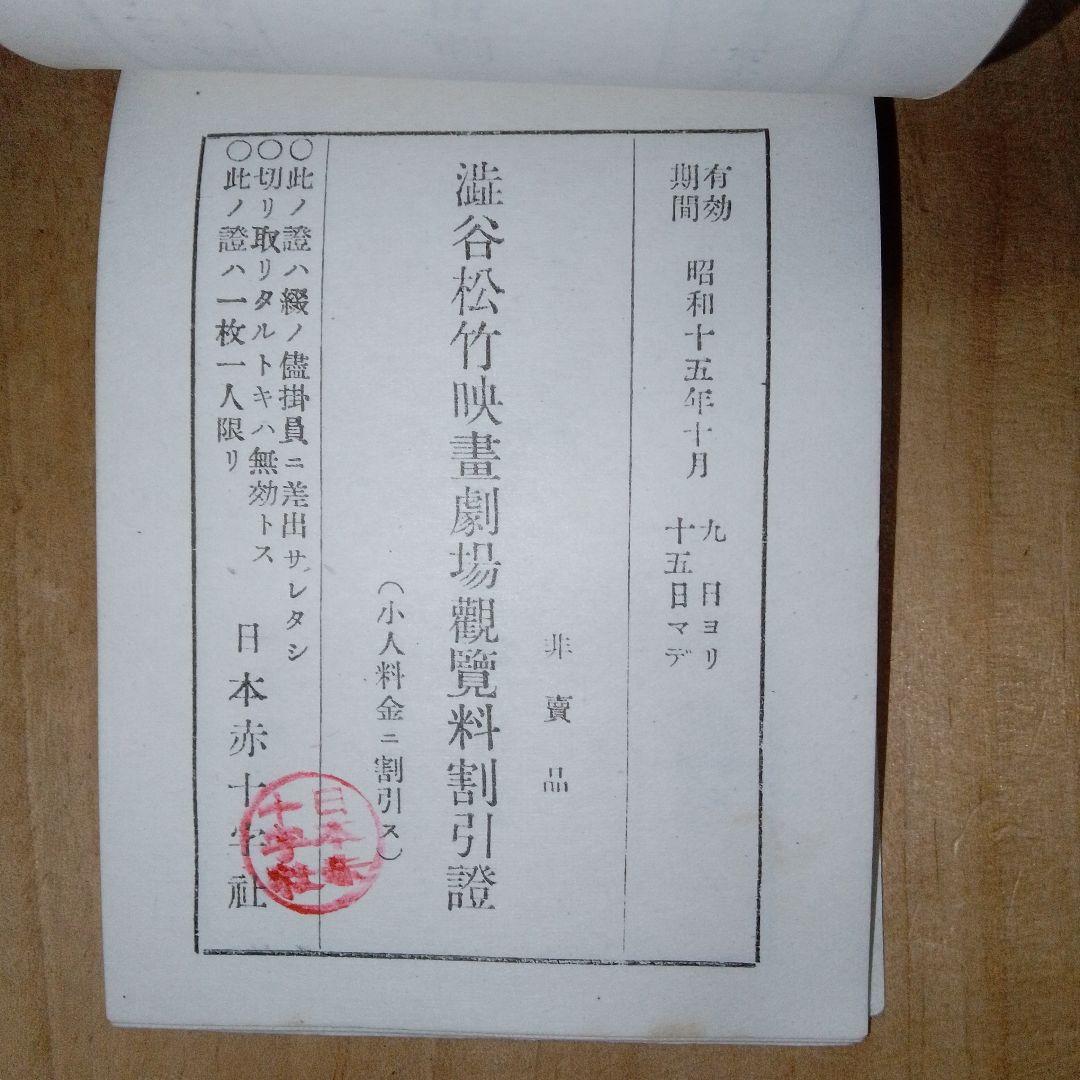 有効期間 昭和十五年十月 九日ヨリ 十五日マデ
非賣品
澁谷松竹映畫劇場觀覽料割引證
(小人料金ニ割引ス)
○此ノ證ハ綴ノ儘掛員ニ差出サレタシ
○切リ取リタルトキハ無効トス
○此ノ證ハ一枚一人限リ
日本赤十字社
日本赤十字社